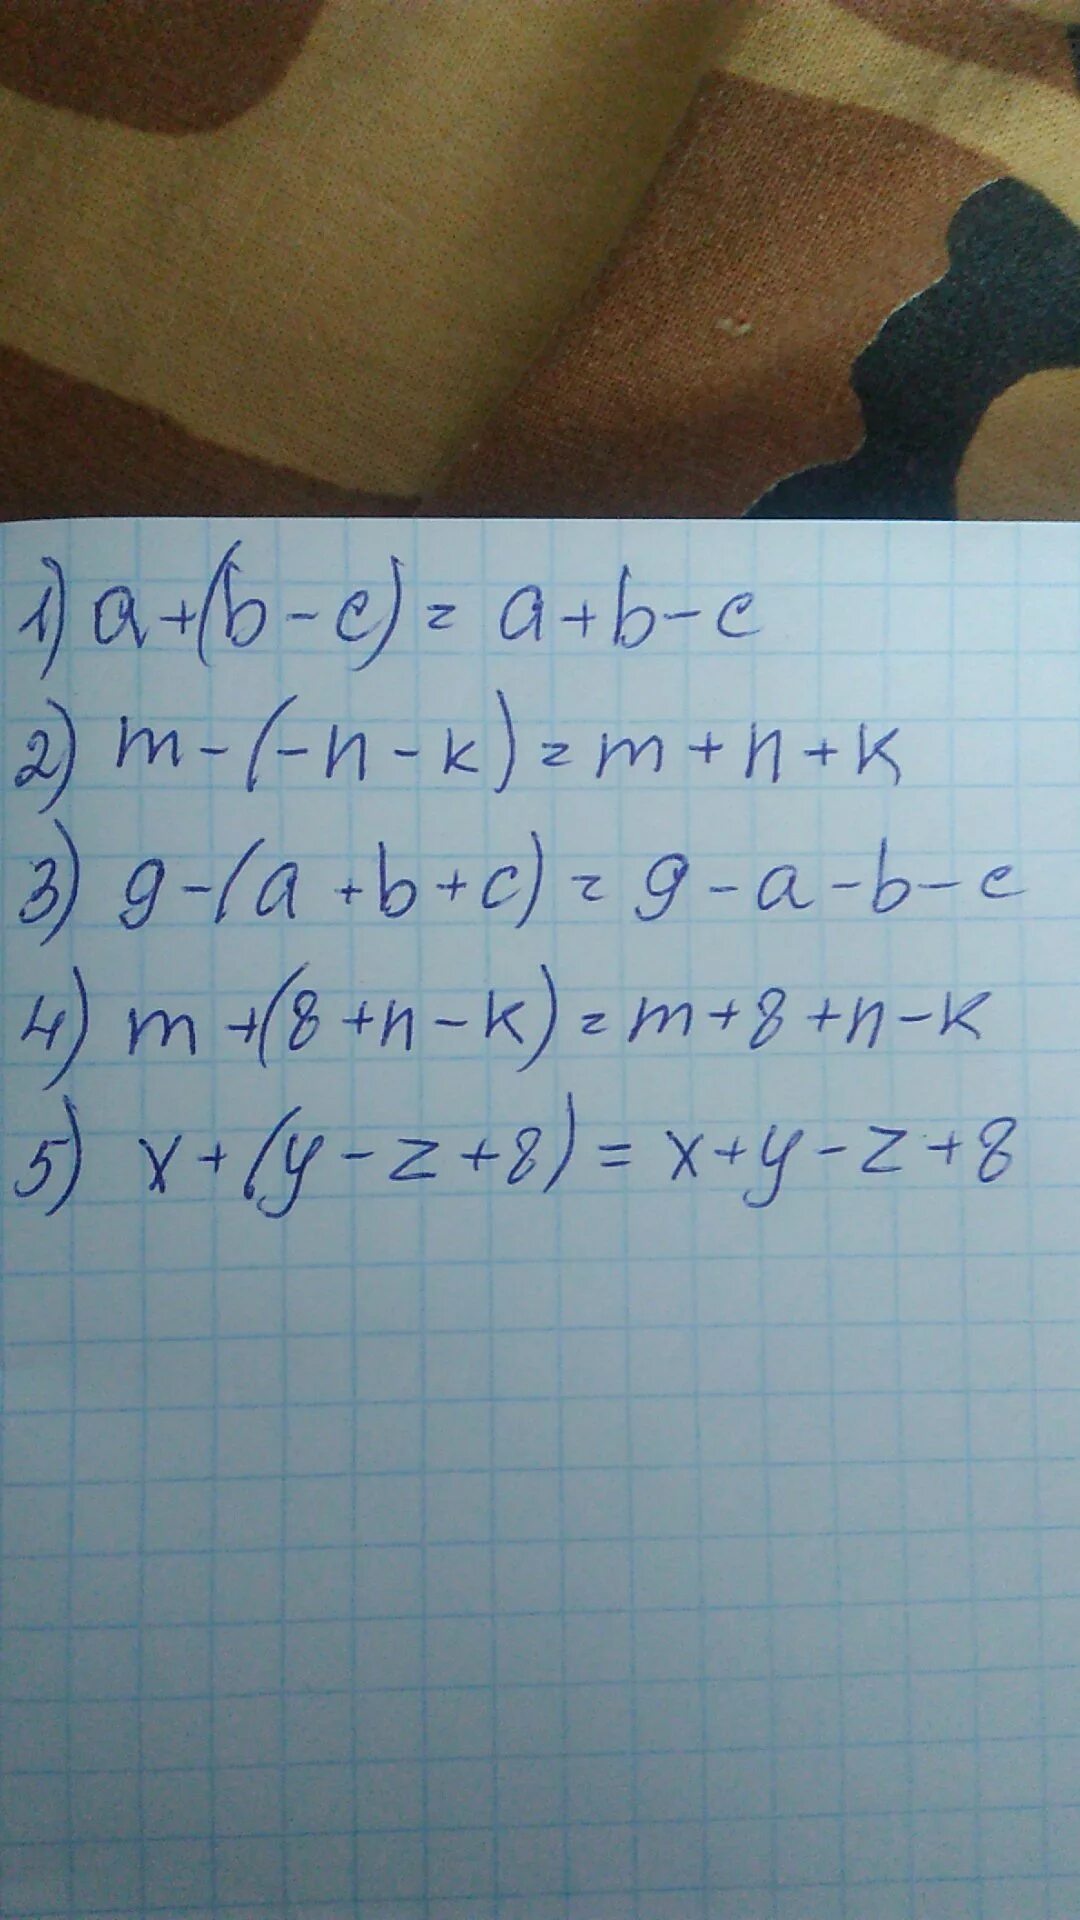 1) a+(b-c)= a+b-c
2) m-(-n-k)=m+n+k
3) g-(a+b+c)=g-a-b-c
4) m+(8+n-k)=m+8+n-k
5) x+(y-z+8)=x+y-z+8